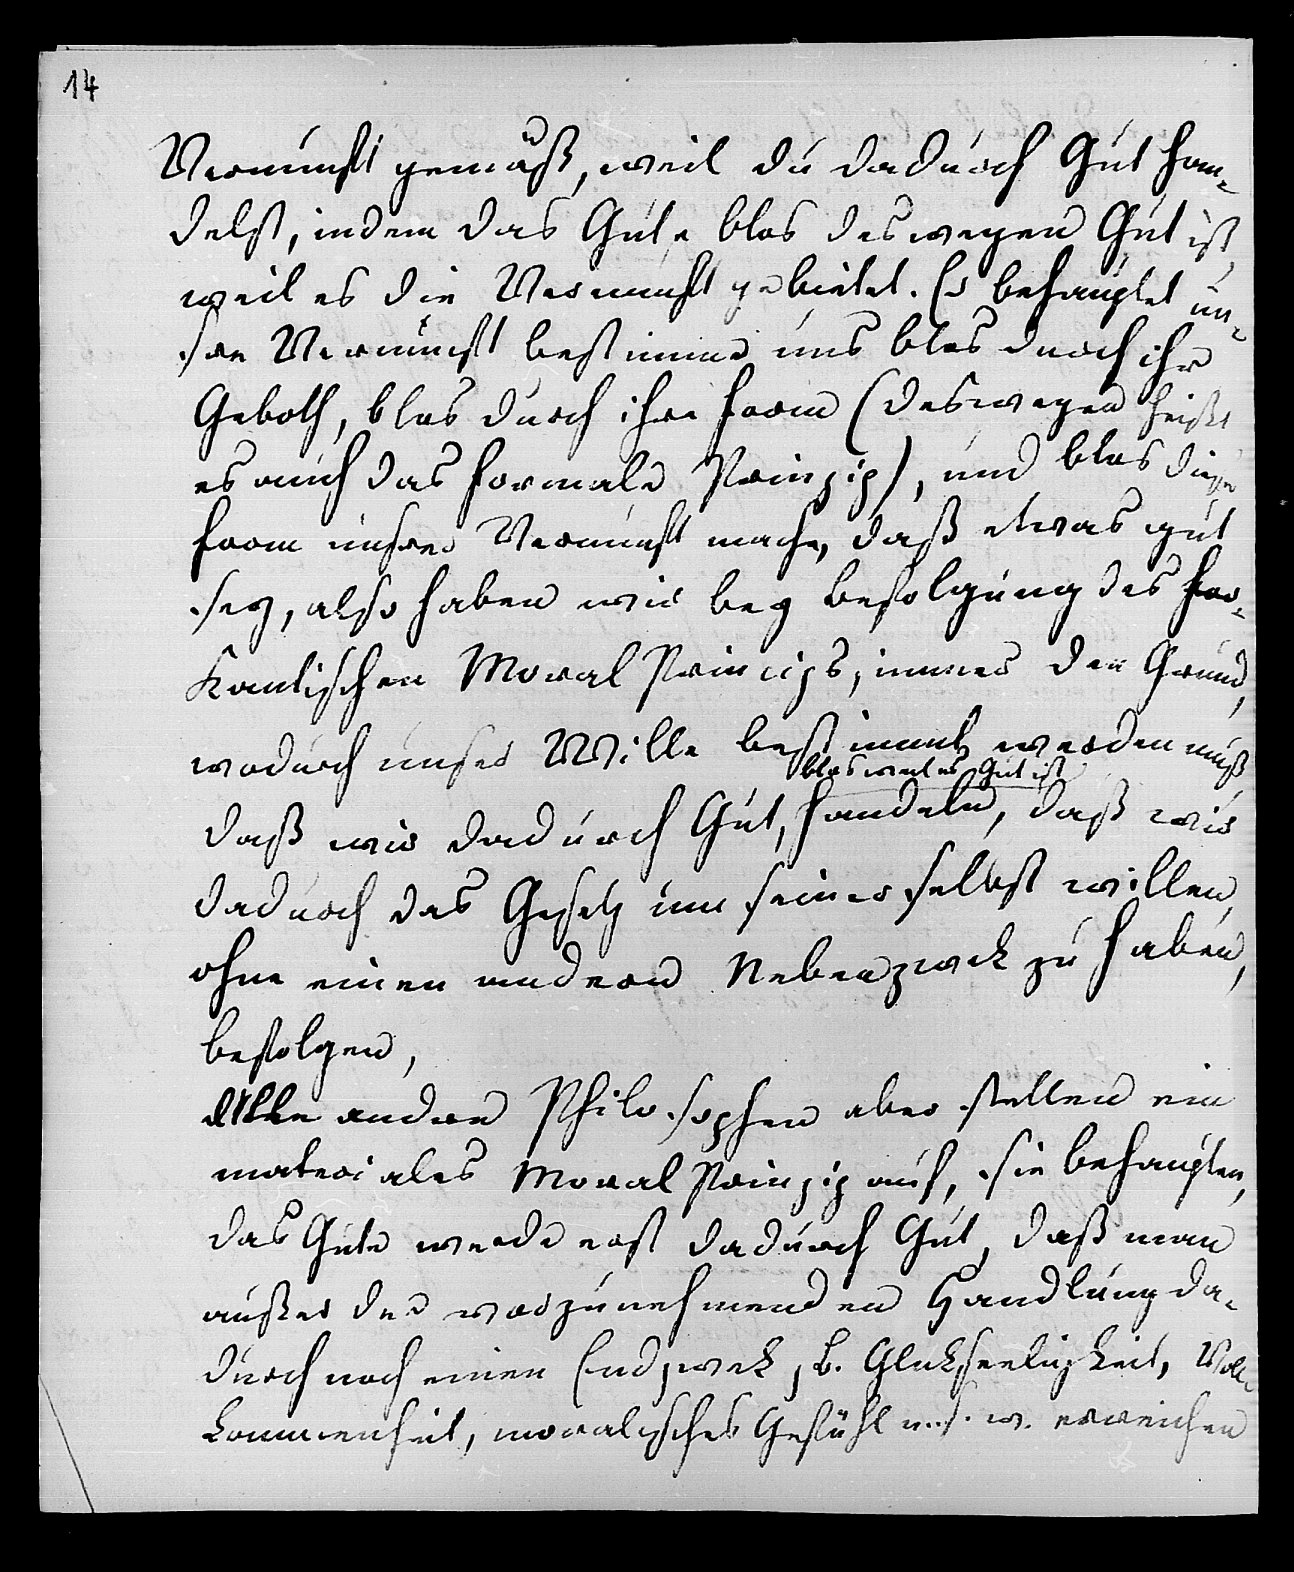 14
Vernunft gemäß, weil du dadurch Gut han-
delst, indem das Gute blos deswegen Gut ist,
weil es die Vernunft gebietet. Er behauptet un-
sre Vernunft bestimme uns blos durch ihr
Geboth, blos durch ihre Form (deswegen heißt
es auch das formale Prinzip), und blos diese
Form unsrer Vernunft mache, daß etwas gut
sey, also haben wir bey Befolgung des
Kantischen Moral Princips, immer den Grund,
wodurch unser Wille bestimmt werden muß
blos weil es Gut ist
daß wir dadurch Gut, handeln, daß wir
dadurch das Gesetz um seiner selbst willen,
ohne einen andern Nebenzwek zu haben,
befolgen,
Alle andre Philosophen aber stellen ein
materiales Moral Prinzip auf, sie behaupten,
das Gute werde erst dadurch Gut, daß man
außer der vorzunehmenden Handlung da-
durch noch einen Endzwek z. B. Glukseeligkeit, Voll-
kommenheit, moralisches Gefühl u. s. w. erreichen